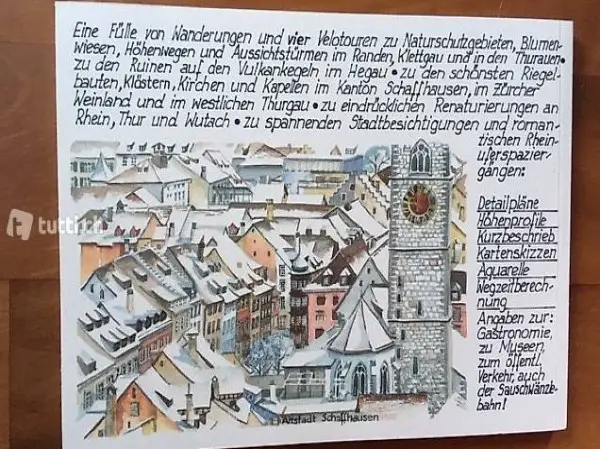 Eine Fülle von Wanderungen und vier Velotouren zu Naturschutzgebieten, Blumen-
wiesen, Höhenwegen und Aussichtstürmen im Randen, Klettgau und in den Thurauen •
zu den Ruinen auf den Vulkankegeln im Hegau • zu den schönsten Riegel-
bauten, Klöstern, Kirchen und Kapellen im Kanton Schaffhausen, im Zürcher
Weinland und im westlichen Thurgau • zu eindrücklichen Renaturierungen an
Rhein, Thur und Wutach • zu spannenden Stadtbesichtigungen und roman-
tischen Rhein-
uferspazier-
gängen:
Detailpläne
Höhenprofile
Kurzbeschrieb
Kartenskizzen
Aquarelle
Wegzeitberech-
nung
Angaben zur:
Gastronomie,
zu Museen,
zum öffentl.
Verkehr, auch
der Sauschwänzle-
bahn!
Altstadt Schaffhausen
tutti.ch